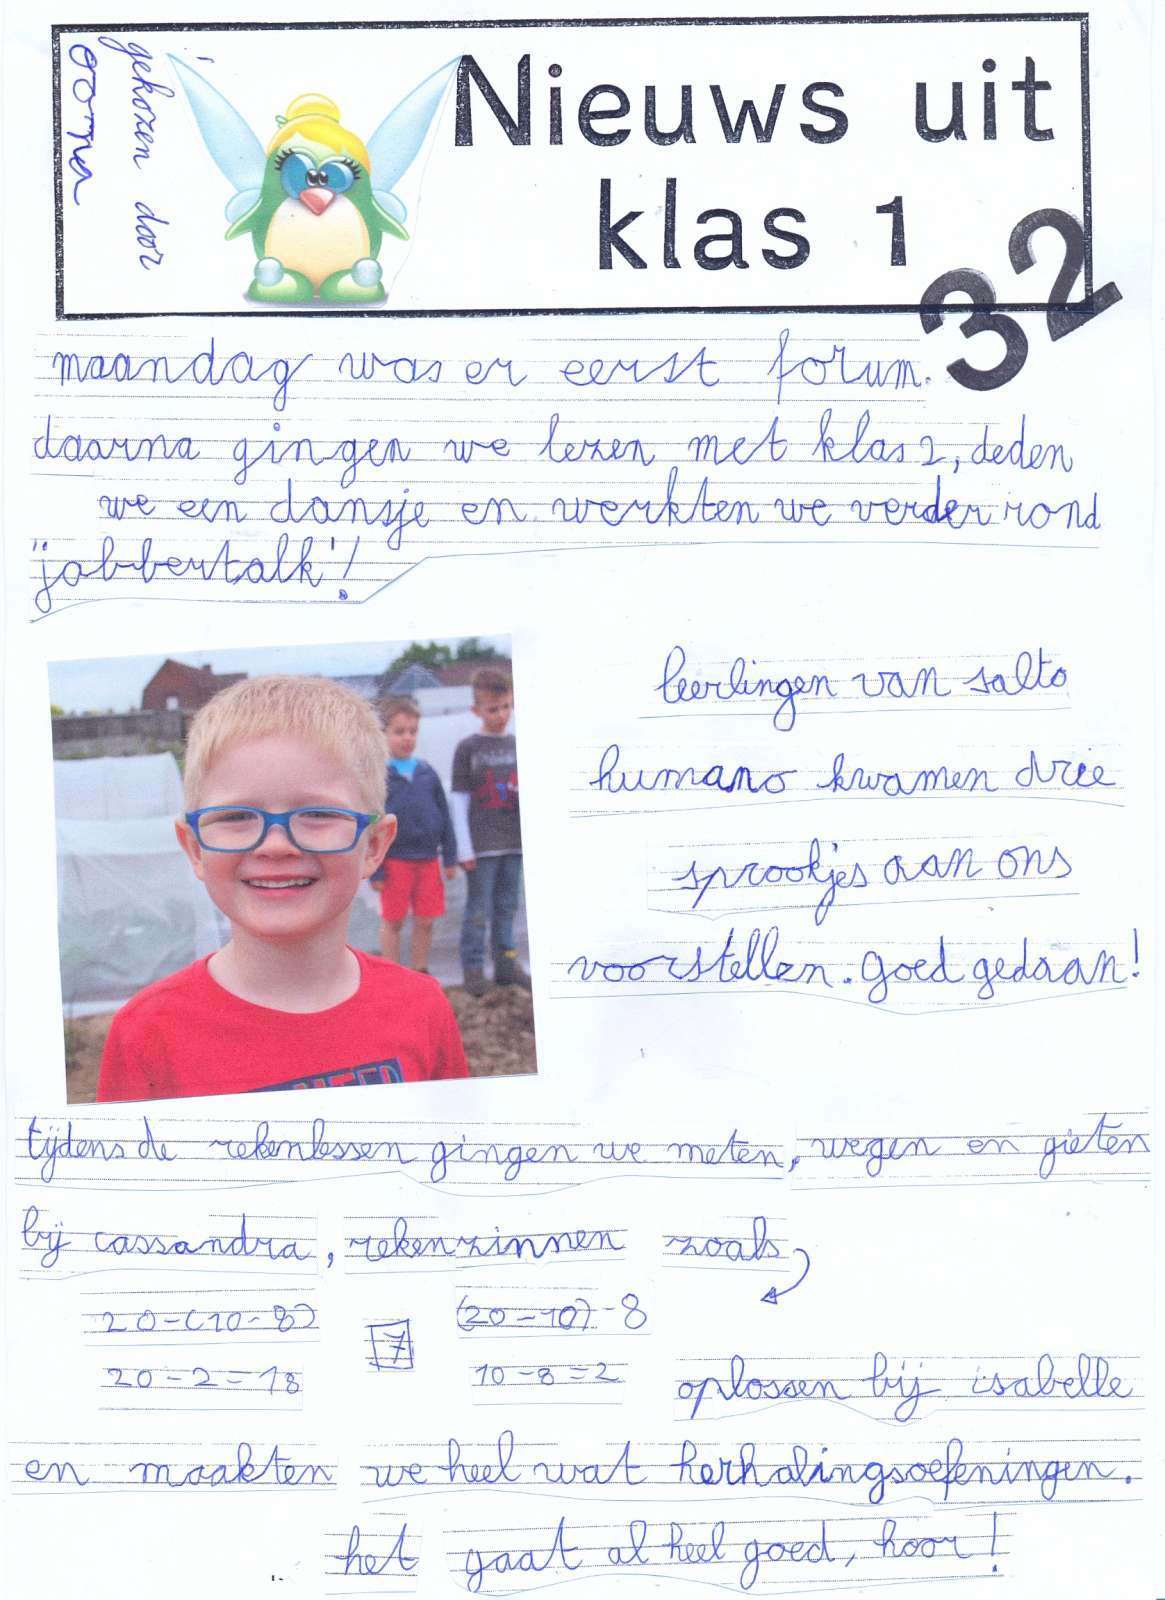 gekozen door
oona
Nieuws uit
klas 1
32
maandag was er eerst forum.
daarna gingen we lezen met klas 2, deden
we een dansje en werkten we verder rond
"jabbertalk"!
leerlingen van salto
humano kwamen drie
sprookjes aan ons
voorstellen. goed gedaan!
tijdens de rekenlessen gingen we meten, wegen en gieten
bij cassandra, rekenzinnen zoals
20-(10-8) (20-10)-8
20-2=18 10-8=2
oplossen bij isabelle
en maakten we heel wat herhalingsoefeningen.
het gaat al heel goed, hoor!